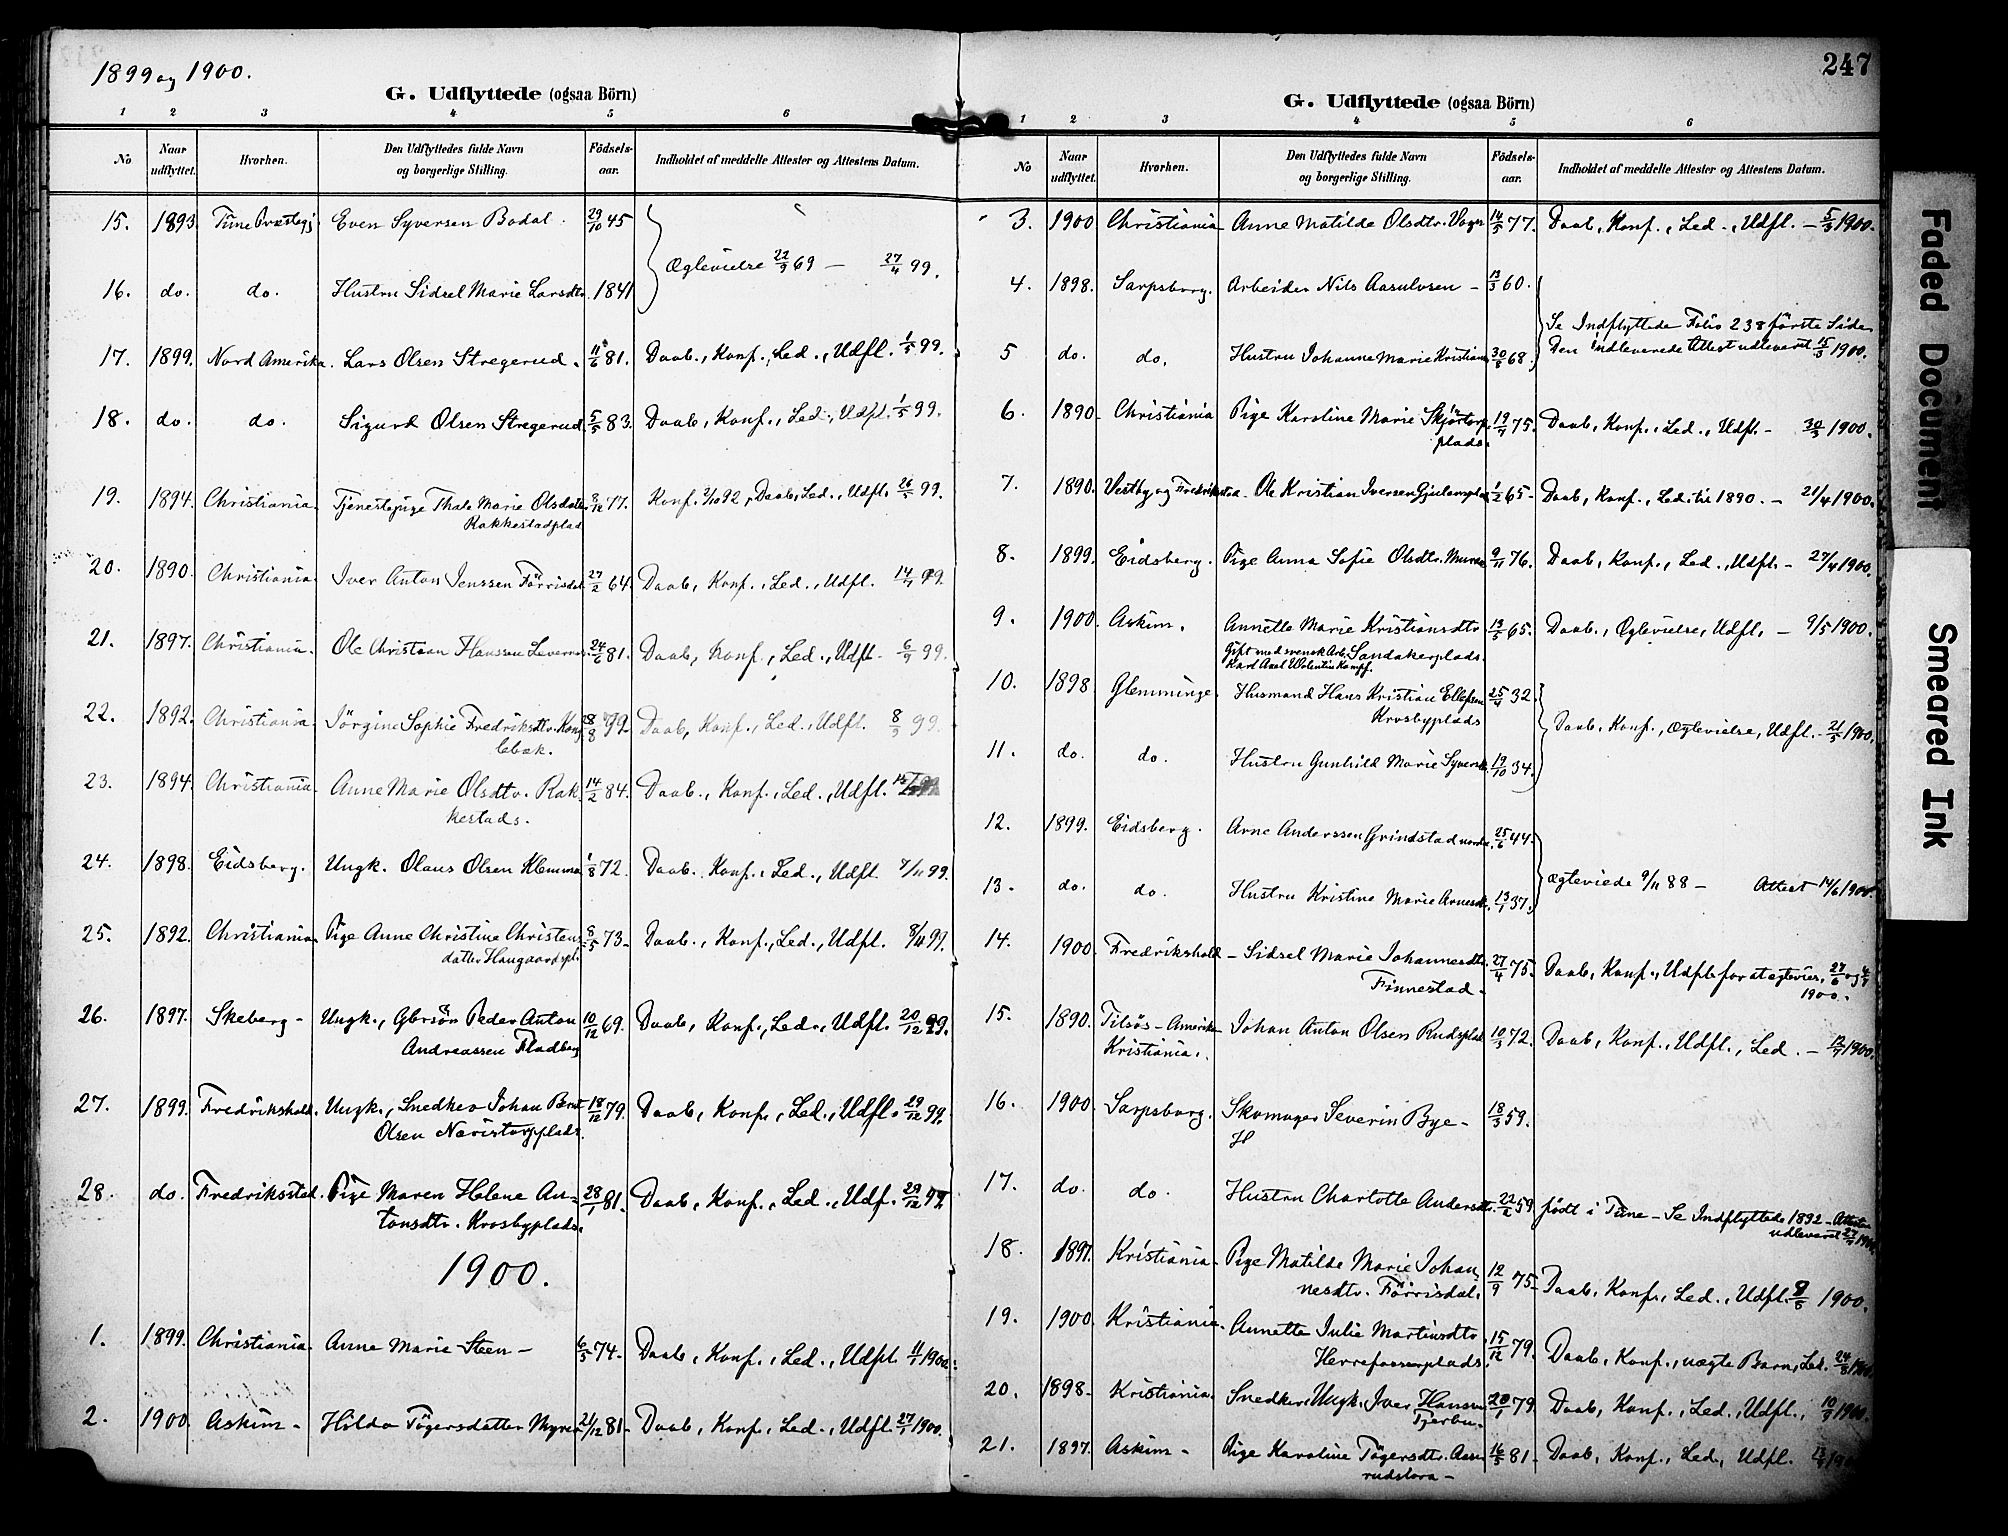 1899 og 1900.
G. Udflyttede (ogsaa Börn)
1 2 3 4 5 6
No Naar udflyttet. Hvorhen. Den Udflyttedes fulde Navn og borgerlige Stilling. Födsels-aar. Indholdet af meddelte Attester og Attestens Datum.
15. 1893. Tune Præstegj. Even Syversen Bodal. 29/10 45
Ægtevielse 22/9 69 — 27/4 99.
16. do. do. Hustru Sidsel Marie Larsdtr. 1841
17. 1899. Nord Amerika. Lars Olsen Stregerud. 11/6 81. Daab., Konf., Led., Udfl. 1/5 99.
18. do. do. Sigurd Olsen Stregerud. 5/5 83. Daab, Konf., Led., Udfl. 1/5 99.
19. 1894. Christiania. Tjenestepige Thale Marie Olsdatter 8/12 77. Konf. 2/10 92, Daab, Led., Udfl. 99.
Rakkestadplad
20. 1890. Christiania. Iver Anton Jenssen Förrisdal 27/2 64. Daab, Konf., Led., Udfl. 14/7 99.
21. 1897. Christiania. Ole Christian Hanssen 24/6 81. Daab, Konf., Led., Udfl. 6/9 99.
22. 1892. Christiania. Jörgine Sophie Fredriksdtr. Kong 99. Daab, Konf., Led., Udfl. 8/9 99.
lebæk.
23. 1894. Christiania. Anne Marie Olsdtr. Rak- 14/2 84. Daab., Konf., Led., Udfl.
kestads.
24. 1898. Eidsberg. Ungk. Olaus Olsen Klemma 1/8 72. Daab. Konf., Led., Udfl. 7/11 99.
25. 1892. Christiania Pige Anne Christine Christens 8/5 73. Daab., Konf., Led., Udfl. 8/11 99.
datter Haugaardspl.
26. 1897. Skeberg - Ungk., Gbrsön Peder Anton 10/12 69. Daab, Konf., Led., Udfl. 20/12 99.
Andreassen Fladberg
27. 1899. Fredrikshald. Ungk., Snedker Johan Bernt 18/12 79. Daab, Konf., Led., Udfl. 29/12 99.
Olsen Navistorpplads.
28. do. Fredriksstad. Pige Maren Helene An- 28/1 81. Daab, Konf., Led., Udf. 29/12 99
tonsdtr. Krosbyplads.
1900.
1. 1899. Christiania. Anne Marie Steen - 6/5 74. Daab, Konf., Led., Udfl. 11/1 1900.
2. 1900. Askim - Hilda Tögersdatter Myrer 21/12 81. Daab, Konf., Led., Udfl. 27/1 1900.
247
G. Udflyttede (ogsaa Börn)
1 2 3 4 5 6
No Naar udflyttet. Hvorhen. Den Udflyttedes fulde Navn og borgerlige Stilling. Födsels-aar. Indholdet af meddelte Attester og Attestens Datum.
3. 1900 Christiania Anne Matilde Olsdtr. Vogn 14/5 77. Daab, Konf., Led., Udfl. — 5/3 1900.
4. 1898. Sarpsborg. Arbeider Nils Aasulvsen - 13/3 60.
Se Indflyttede Folio 238 förste Side
5 do. do. Hustru Johanne Marie Kristians 68. Den indleverede Attest udleveret 15/3 1900.
6. 1890. Christiania Pige Karoline Marie Skjörtorp 19/7 75. Daab, Konf., Led., Udfl. - 30/3 1900.
plads.
7. 1890. Vestby og Fredrikstad. Ole Kristian Iversen 1/2 65. Daab, Konf., Led. til 1890. - 21/4 1900.
8. 1899. Eidsberg. Pige Anna Sofie Olsdtr. 76. Daab, Konf., Led., Udfl. - 27/4 1900.
9. 1900. Askim. Annette Marie Kristiansdtr. 13/5 65. Daab., Ægtevielse, Udfl. - 9/5 1900.
Gift med svensk Arb. Sandakerplads.
Karl Axel Valentin Kampf.
10. 1898. Glemminge. Husmand Hans Kristian Ellefsen 25/4 32.
Krosbyplads
Daab, Konf., Ægtevielse, Udfl. - 21/5 1900.
11. do. do. Hustru Gunhild Marie Syversd. 19/10 34.
12. 1899. Eidsberg. Arne Anderssen Grindstad nordre. 25/6 44.
Ægteviede 9/11 88 - Attest 14/6 1900.
13. do. do. Hustru Kristine Marie Arnesdt. 13/1 37.
14. 1900. Fredrikshald - Sidsel Marie Johannesdtr. 27/4 75. Daab, Konf., Udfl. for at ægtevies, 27/6 og
Finnestad - 1900.
15. 1890. Tilsös - Amerika Johan Anton Olsen Rudsplad 10/3 72. Daab, Konf., Udfl., Led. - 1900.
Kristiania.
16. 1900. Sarpsborg. Skomager Severin Bye - 18/3 59.
H
17. do. do. Hustru Charlotte Andersdtr. 22/2 59 født i Tune - Se Indflyttede 1892 - Attesten
udleveret 1900
18. 1897. Kristiania. Pige Matilde Marie Johan- 12/9 75. Daab, Konf., Led., Udfl. 1900.
nesdtr. Förrisdal.
19. 1900. Kristiania. Annette Julie Martinsdtr. 15/12 79. Daab, Konf., uægte Barn, Led. 24/8 1900
Herrefosserplads
20. 1898. Kristiania. Snedker Ungk. Iver Hansen 20/1 79. Daab, Konf., Led., Udfl., 10/9 1900.
Tjerbu.
21. 1897. Askim - Pige Karoline Tögersdtr. Aase 16/5 81. Daab, Konf., Led., Udfl.
rudstora -
Faded Document
Smeared Ink